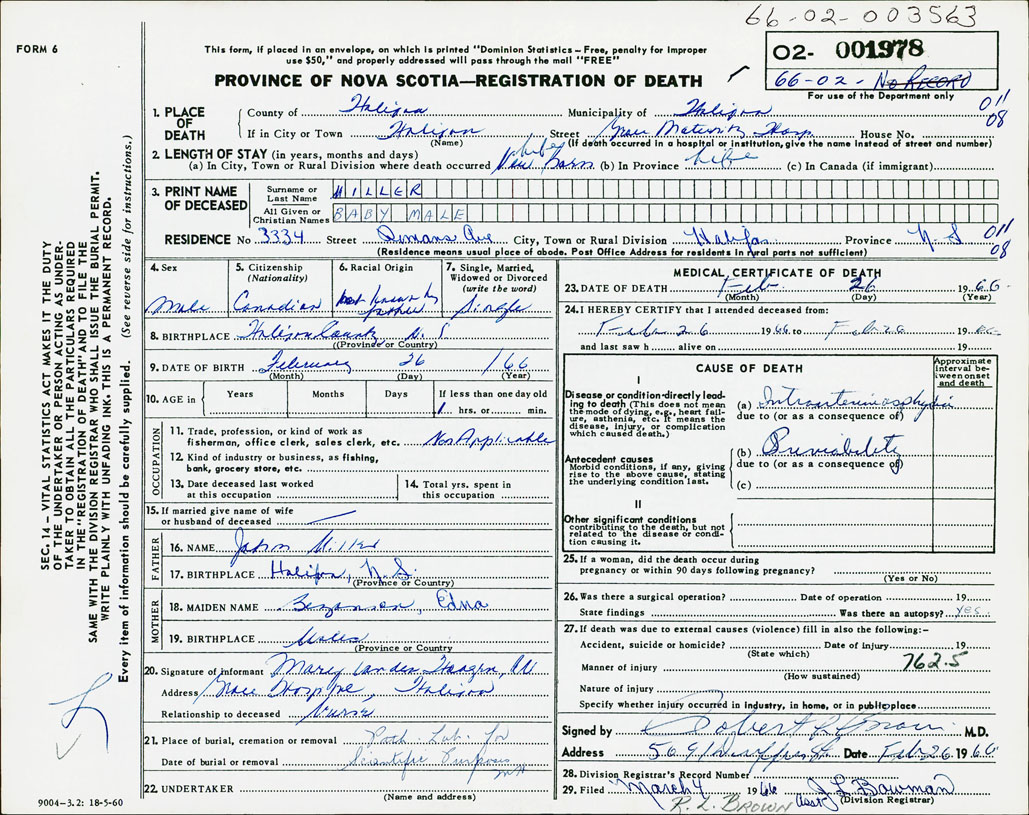 66-02-003563
FORM 6
This form, if placed in an envelope, on which is printed "Dominion Statistics – Free, penalty for improper
use $50," and properly addressed will pass through the mail "FREE"
PROVINCE OF NOVA SCOTIA—REGISTRATION OF DEATH
02- 001978
66-02- NO RECORD
For use of the Department only
1. PLACE OF DEATH
County of Halifax Municipality of Halifax 011
If in City or Town Halifax Street Grace Maternity Hosp House No. 08
(Name) (If death occurred in a hospital or institution, give the name instead of street and number)
2. LENGTH OF STAY (in years, months and days)
(a) In City, Town or Rural Division where death occurred life New Born (b) In Province Life (c) In Canada (if immigrant)
3. PRINT NAME OF DECEASED
Surname or Last Name MILLER
All Given or Christian Names BABY MALE
RESIDENCE No 3334 Street Romans Ave City, Town or Rural Division Halifax Province N. S 011
(Residence means usual place of abode. Post Office Address for residents in rural parts not sufficient) 08
4. Sex Male
5. Citizenship (Nationality) Canadian
6. Racial Origin not known by father
7. Single, Married, Widowed or Divorced (write the word) Single
8. BIRTHPLACE Halifax County N. S
(Province or Country)
9. DATE OF BIRTH February 26 1/66
(Month) (Day) (Year)
10. AGE in Years Months Days If less than one day old
1 hrs. or min.
OCCUPATION
11. Trade, profession, or kind of work as
fisherman, office clerk, sales clerk, etc. Not Applicable
12. Kind of industry or business, as fishing,
bank, grocery store, etc.
13. Date deceased last worked
at this occupation
14. Total yrs. spent in
this occupation
15. If married give name of wife
or husband of deceased
FATHER
16. NAME John Miller
17. BIRTHPLACE Halifax, N. S.
(Province or Country)
MOTHER
18. MAIDEN NAME Bezanson, Edna
19. BIRTHPLACE Wales
(Province or Country)
20. Signature of informant Mary
Address Grace Hosp, Halifax
Relationship to deceased Nurse
21. Place of burial, cremation or removal Path. Lab. for
Date of burial or removal Scientific Purposes
22. UNDERTAKER
(Name and address)
MEDICAL CERTIFICATE OF DEATH
23. DATE OF DEATH Feb. 26 1966
(Month) (Day) (Year)
24. I HEREBY CERTIFY that I attended deceased from:
Feb 26 1966 to Feb 26 1966
and last saw h alive on 19
CAUSE OF DEATH
Approximate interval between onset and death
I
Disease or condition-directly leading to death (This does not mean
the mode of dying, e.g., heart failure, asthenia, etc. It means the
disease, injury, or complication
which caused death.)
(a) Intrauterine asphyxia
due to (or as a consequence of)
Antecedent causes
Morbid conditions, if any, giving
rise to the above cause, stating
the underlying condition last.
(b) Previability
due to (or as a consequence of)
(c)
II
Other significant conditions
contributing to the death, but not
related to the disease or condition causing it.
25. If a woman, did the death occur during
pregnancy or within 90 days following pregnancy?
(Yes or No)
26. Was there a surgical operation? Date of operation 19
State findings Was there an autopsy? yes
27. If death was due to external causes (violence) fill in also the following:-
Accident, suicide or homicide? Date of injury 19
(State which)
Manner of injury 762.5
(How sustained)
Nature of injury
Specify whether injury occurred in industry, in home, or in public place
Signed by Robert M.D.
Address 5691 St Date Feb 26 1966
28. Division Registrar's Record Number
29. Filed March 4 1966 Asst J L Bowman
(Division Registrar)
R. L. BROWN
9004-3.2: 18-5-60
SEC. 14 – VITAL STATISTICS ACT MAKES IT THE DUTY
OF THE UNDERTAKER OR PERSON ACTING AS UNDER-
TAKER TO OBTAIN ALL THE PARTICULARS REQUIRED
IN THE "REGISTRATION OF DEATH" AND TO FILE THE
SAME WITH THE DIVISION REGISTRAR WHO SHALL ISSUE THE BURIAL PERMIT.
WRITE PLAINLY WITH UNFADING INK. THIS IS A PERMANENT RECORD.
Every item of information should be carefully supplied. (See reverse side for instructions.)